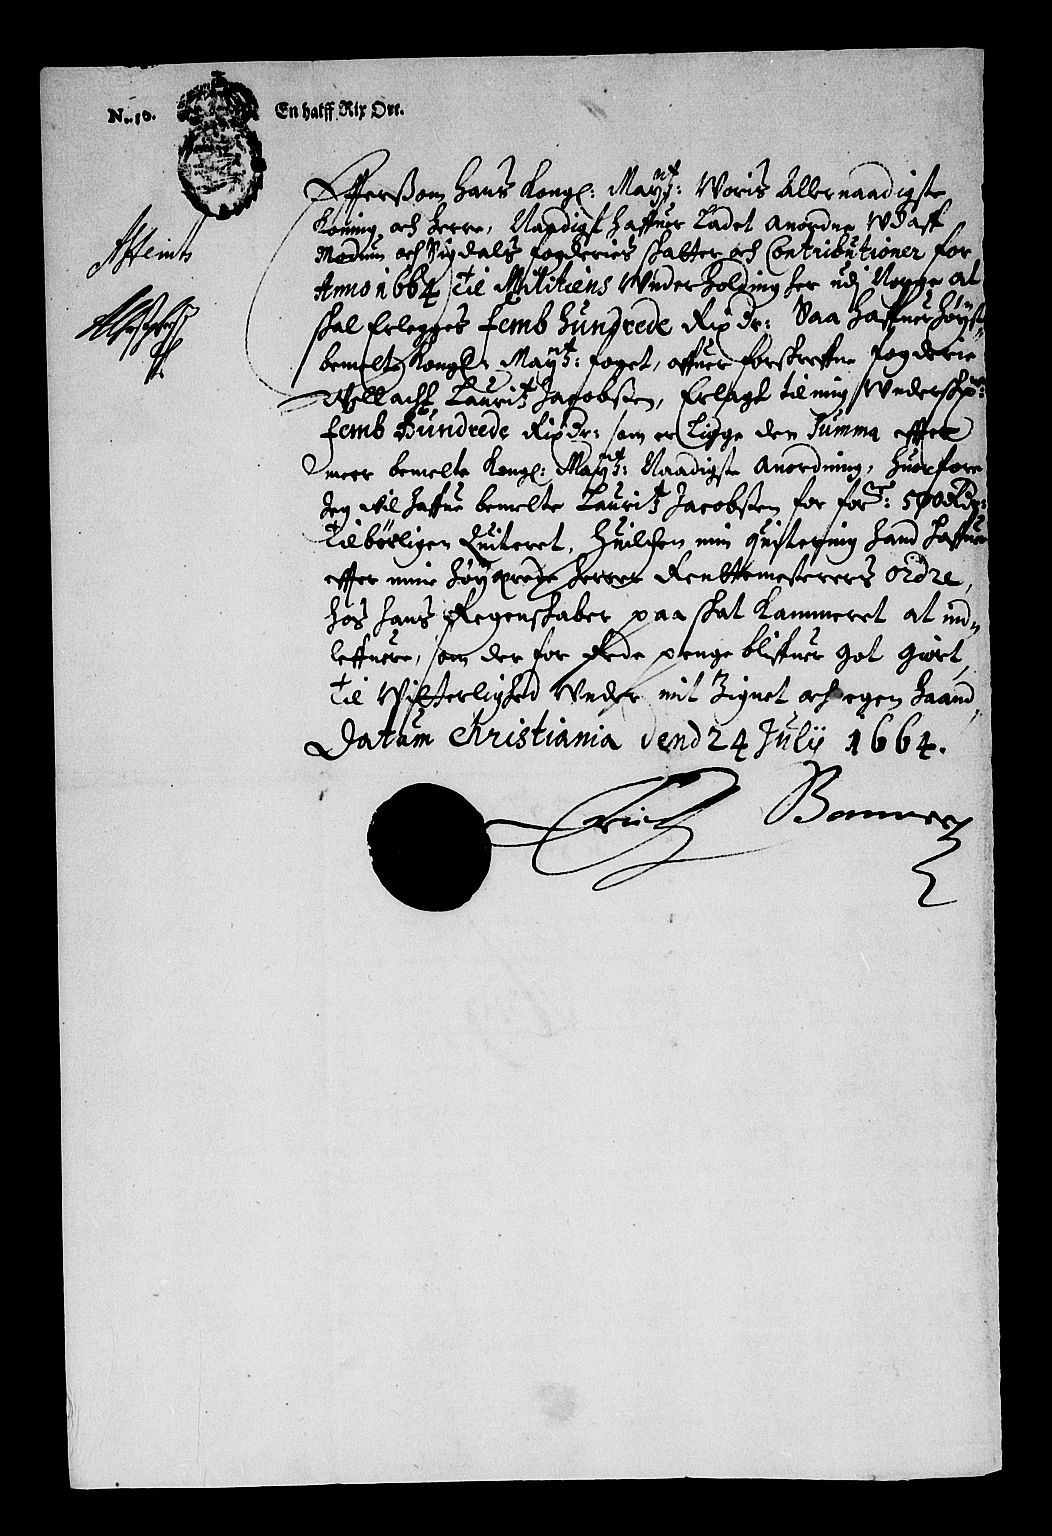 No. 10. En halff Rix Ort.
Effterßom Hans Kongl: Maytz: Woris Allernaadigste
Koning och Herre, Naadigst haffuer Ladet Anordne Wdaff
Modum och Sigdals fogderies skatter och Contributioner for
Anno 1664 Til Militiens Wnderholding her udj Norge at
skal Erlegges femb hundrede Rix Dr: Saa haffuer høyst
bemelte Kongl: Maytz: foget, offuer forskreffne fogderie
Vellacht, Lauritz Jacobßen, Erlagt til mig Wnderskr:
femb Hundrede Rix Dr: som er Ligge den Summa effter
meer bemelte Kongl: Maytz: Naadigste Anordning, huorfore
Jeg vil haffue bemelte Lauritz Jacobßen for forS: 500 RDr:
tilbørligen Quiteret, Huilchen min quitering hand haffuer
effter mine høyærede herrer Rentemesterers ordre,
hos hans Regenskaber paa skat Kammeret at ind
leffuere, som der for Rede penge bliffuer got giort,
Til Witterlighed Under mit Zignet och egen haand,
Datum Christiania dend 24 Julij 1664.
Erich Banner